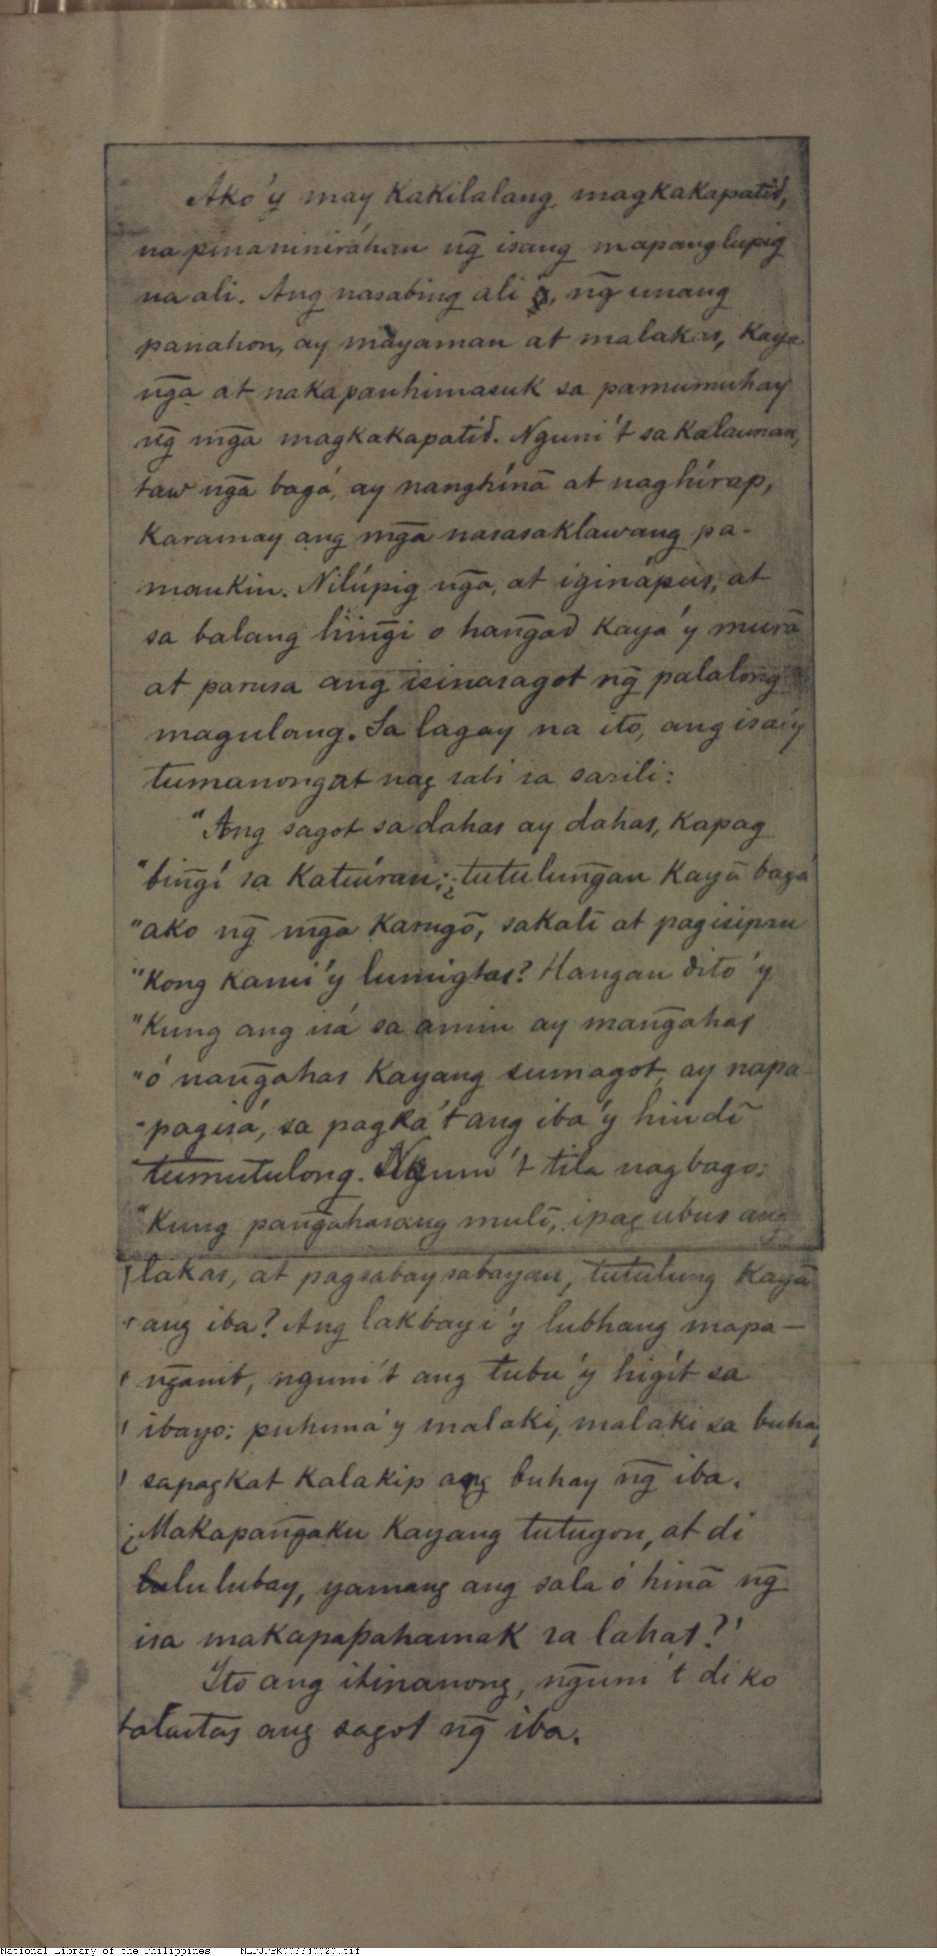 Ako'y may kakilalang magkakapatid,
na pinaniniráhan ng̃ isang mapanglupig
na ali. Ang nasabing ali, ng̃ unang
panahon, ay mayaman at malakas, kaya
ng̃a at nakapanhimasuk sa pamumuhay
ng̃ mg̃a magkakapatid. Nguni't sa kalaunan,
taw ng̃a bagá, ay nanghínã at naghírap,
karamay ang mg̃a nasasaklawang pa-
mankin. Nilúpig ng̃a, at iginápus, at
sa balang hiing̃i o hang̃ad kaya'y murã
at parusa ang isinasagot ng̃ palalong
magulang. Sa lagay na ito, ang isa'y
tumanong at nag sabi sa sarili:
"Ang sagot sa dahas ay dahas, kapag
"bing̃í sa katúiran; ¿tutulung̃an kayã bagá
"ako ng̃ mg̃a karugõ, sakalĩ at pagisipan
"kong kami'y lumigtas? Hangan dito'y
"kung ang isá sa amin ay mang̃ahas
"ó nang̃ahas kayang sumagot, ay napa-
"pagisá, sa pagka't ang iba'y hindĩ
"tumutulong. Nguni't tila nagbago:
"Kung pang̃ahasang mulĩ, ipag ubus ang
lakas, at pagsabaysabayan, tutulung kayã
ang iba? Ang lakbayi'y lubhang mapa-
ng̃anib, nguni't ang tubu'y higít sa
ibayo: puhuna'y malaki, malaki sa buhay
sapagkat kalakip ang buhay ng̃ iba.
¿Makapang̃aku kayang tutugon, at di
lulubay, yamang ang sala ó hinã ng̃
isa makapapahamak sa lahat?'
Ito ang itinanong, ng̃uni't di ko
talastas ang sagot ng̃ iba.
National Library of the Philippines